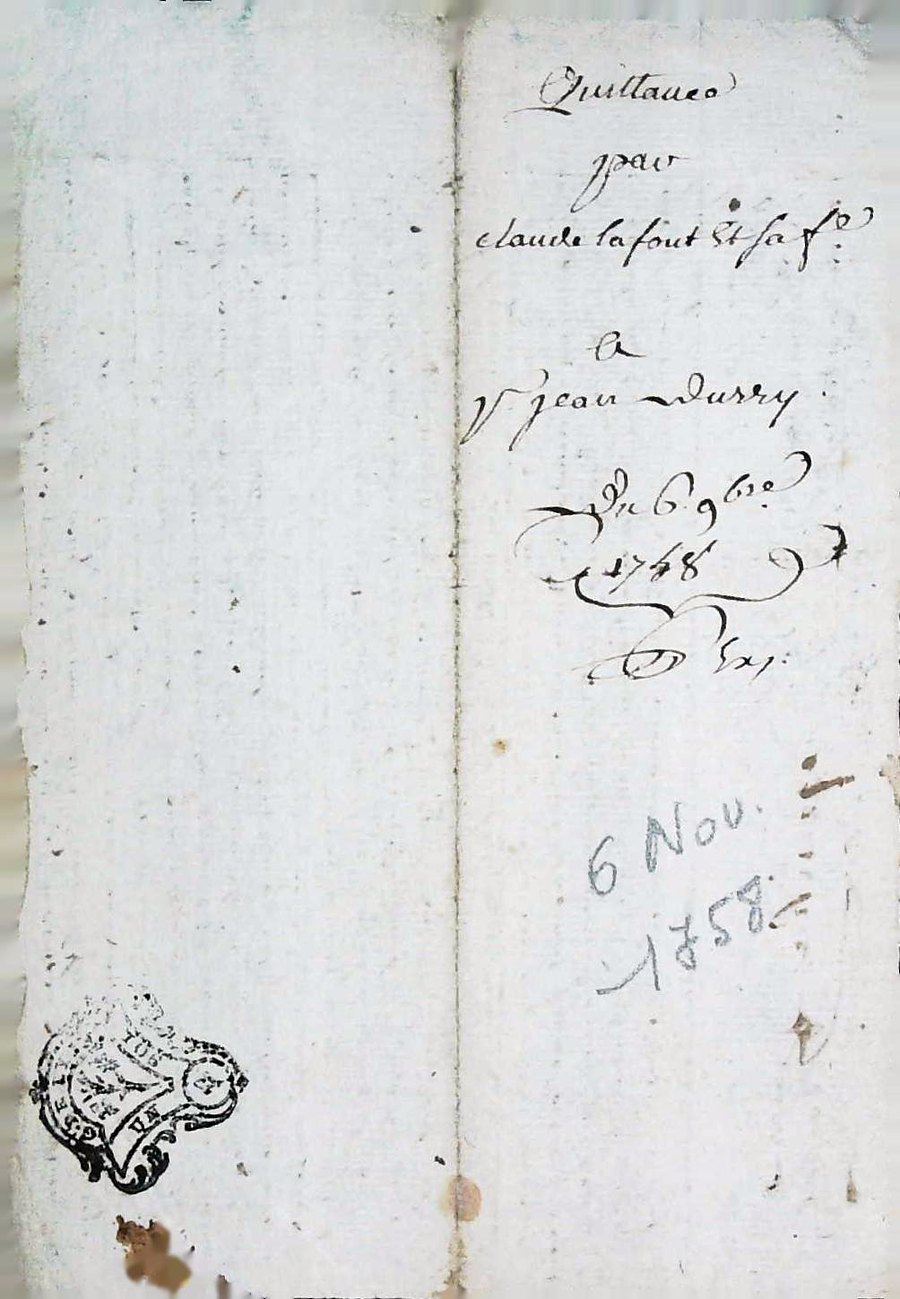 Quittance
par
claude lafont Et sa fe
a
Sr jean Durry
Du 6 9bre
1758
6 Nov.
1758
UN